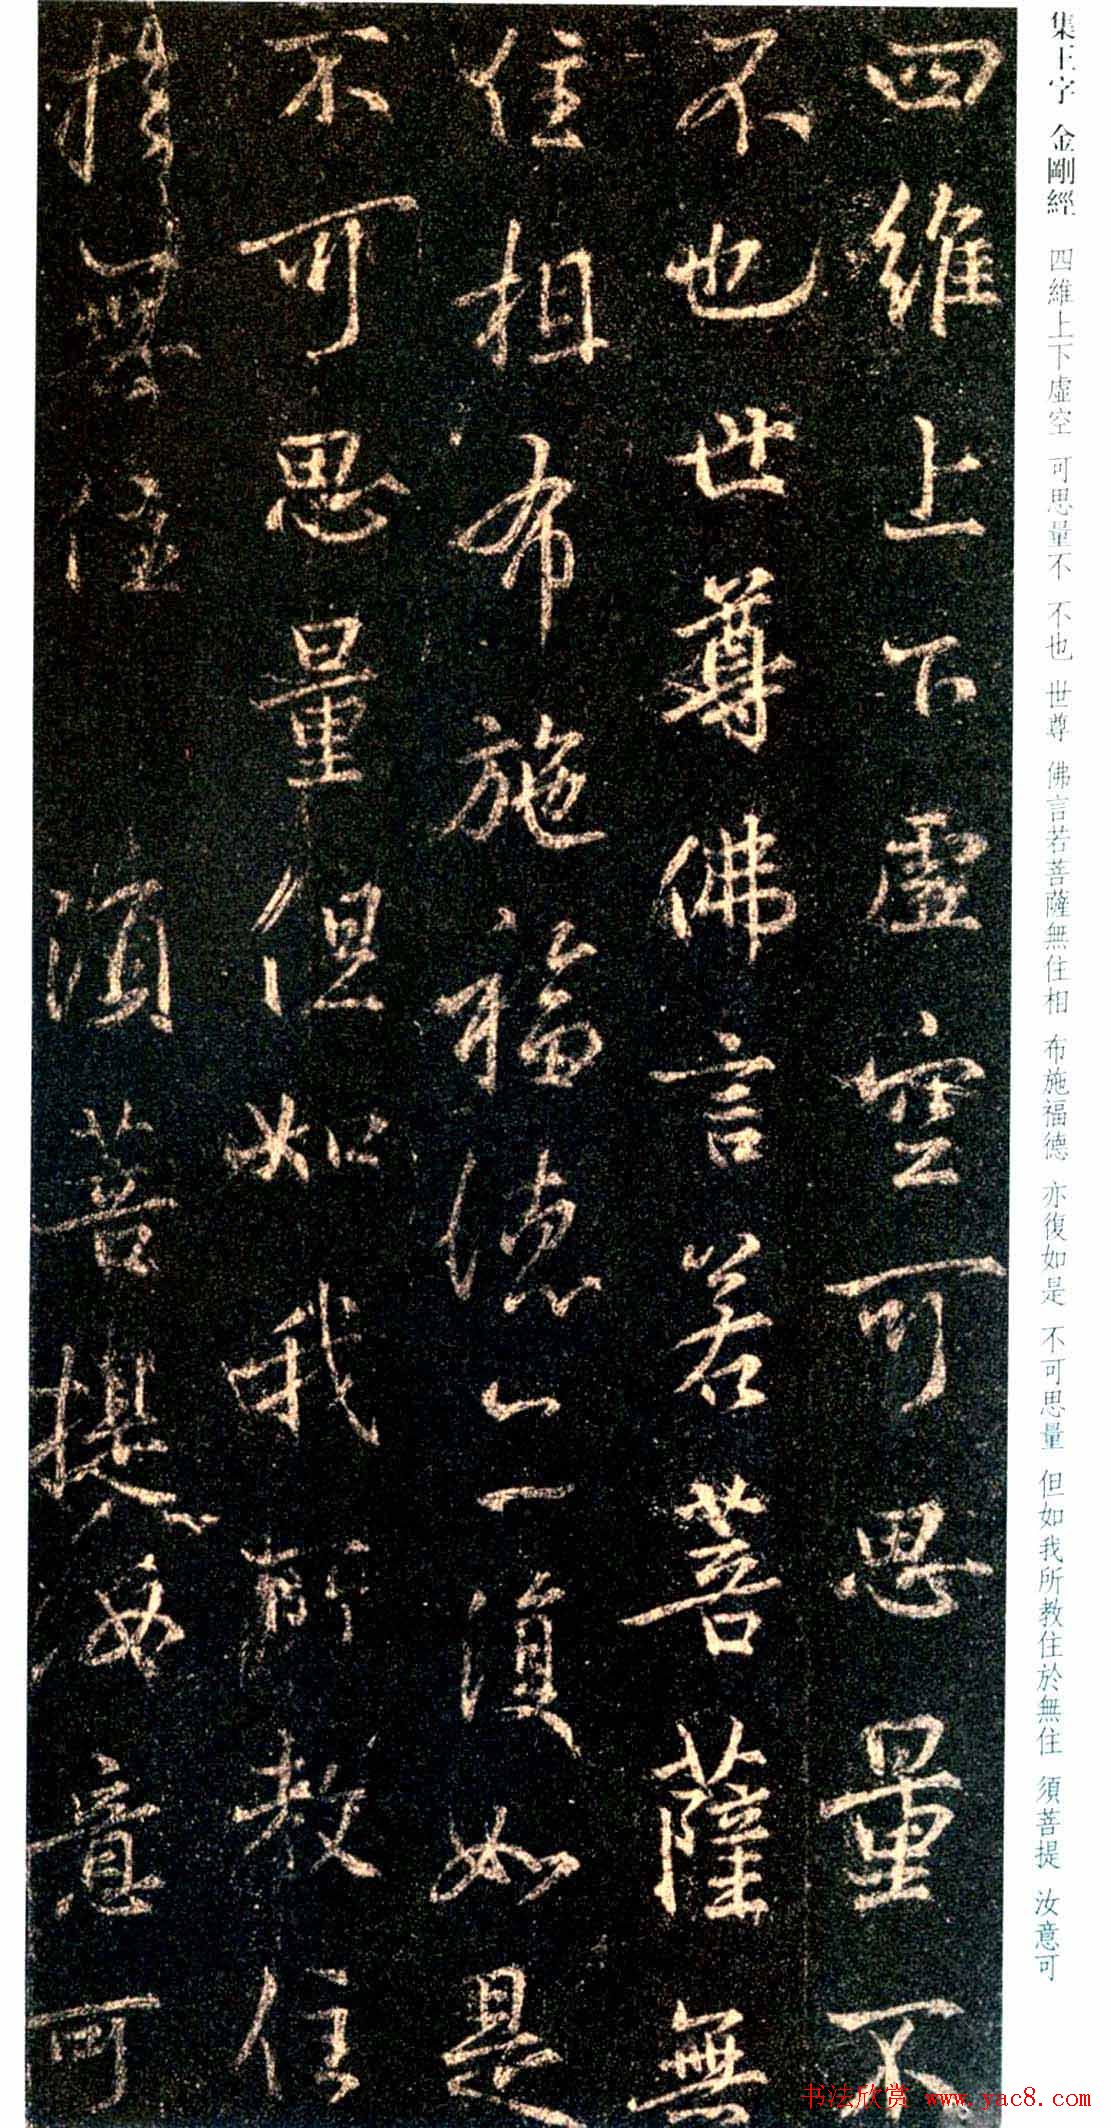 集王字 金剛經 四維上下虛空 可思量不 不也 世尊 佛言若菩薩無住相 布施福德 亦復如是 不可思量 但如我所教住於無住 須菩提 汝意可
四維上下虛空可思量不
不也世尊佛言若菩薩無
住相布施福德亦復如是
不可思量但如我所教住
於無住 須菩提汝意可
书法欣赏 www.yac8.com